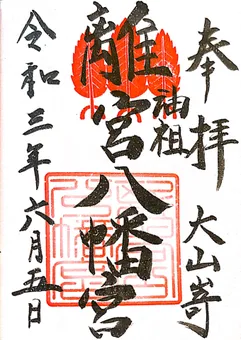 奉拝
大山崎
油祖
離宮八幡宮
令和三年六月五日